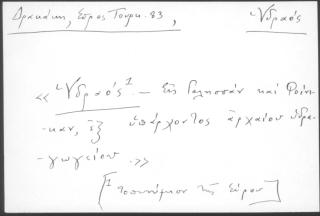 Δρακάκη, Σύρος Τουρκ. 83, Ὑδραός
« Ὑδραός¹ – Εἰς Γαλησσᾶν καὶ Φοίνι-
-καν, ἐξ ὑπάρχοντος ἀρχαίου ὑδρα-
-γωγείου. »
[¹ τοπωνύμιον τῆς Σύρου]